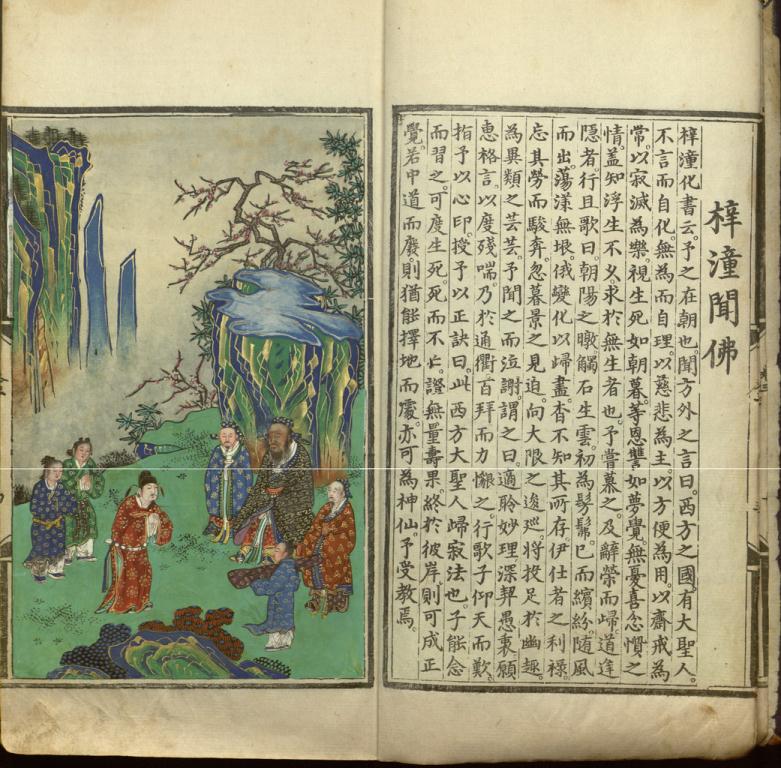 梓潼聞佛
梓潼化書云。予之在朝也。聞方外之言曰。西方之國。有大聖人。
不言而自化。無為而自理。以慈悲為主。以方便為用。以齋戒為
常。以寂滅為樂。視生死如朝暮。等恩讐如夢覺。無憂喜忿懫之
情。蓋知浮生不久。求於無生者也。予嘗慕之。及辭榮而歸。道逢
隱者。行且歌曰。朝陽之暾。觸石生雲。初為髣髴。已而繽紛。隨風
而出。蕩漾無垠。俄變化以歸盡。杳不知其所存。伊仕者之利祿。
忘其勞而駿奔。忽暮景之見迫。向大限之逡巡。將投足於幽趣。
為異類之芸芸。予聞之而泣謝。謂之曰。適聆妙理。深契愚衷。願
惠格言。以度殘喘。乃於通衢。首拜而力懇之。行歌子仰天而歎。
指予以心印。授予以正訣曰。此西方大聖人歸寂法也。子能念
而習之。可度生死。死而不亡。證無量壽果。終於彼岸。則可成正
覺。若中道而廢。則猶能擇地而處。亦可為神仙。予受教焉。